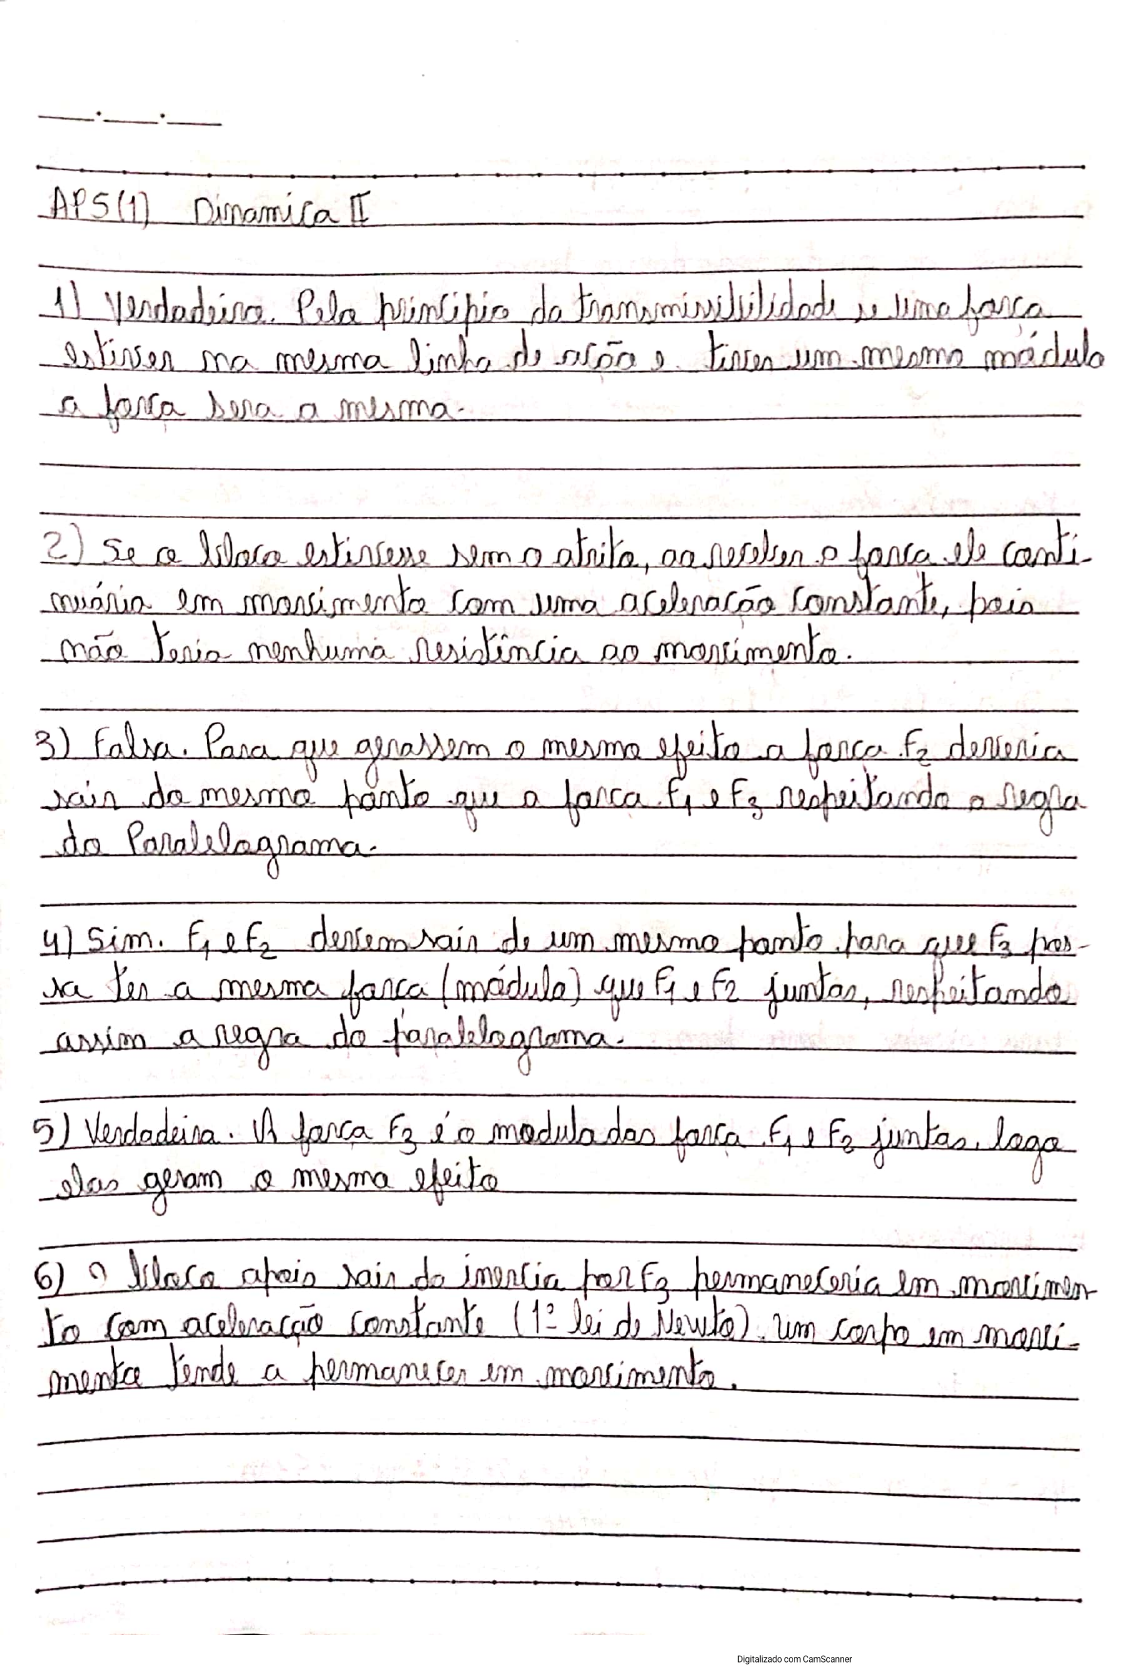 APS(1) Dinamica II
1) Verdadeira. Pelo principio da transmissibilidade se uma força
estiver na mesma linha de ação e tiver um mesmo módulo
a força sera a mesma.
2) Se o bloco estivesse sem o atrito, ao receber a força ele conti-
nuária em movimento com uma aceleração constante, pois
não teria nenhuma resistência ao movimento.
3) Falsa. Para que gerassem o mesmo efeito a força F2 deveria
sair do mesmo ponto que a força F1 e F3 respeitando a regra
do Paralelograma.
4) Sim. F1 e F2 devem sair de um mesmo ponto para que F3 pos-
sa ter a mesma força (módulo) que F1 e F2 juntas, respeitando
assim a regra do paralelograma.
5) Verdadeira. A força F3 é o modulo das força F1 e F2 juntas, logo
elas geram o mesmo efeito
6) O bloco apois sair da inercia por F3 permaneceria em movimen-
to com aceleracção constante (1ª lei de Newto). um corpo em movi-
mento tende a permanecer em movimento.
Digitalizado com CamScanner